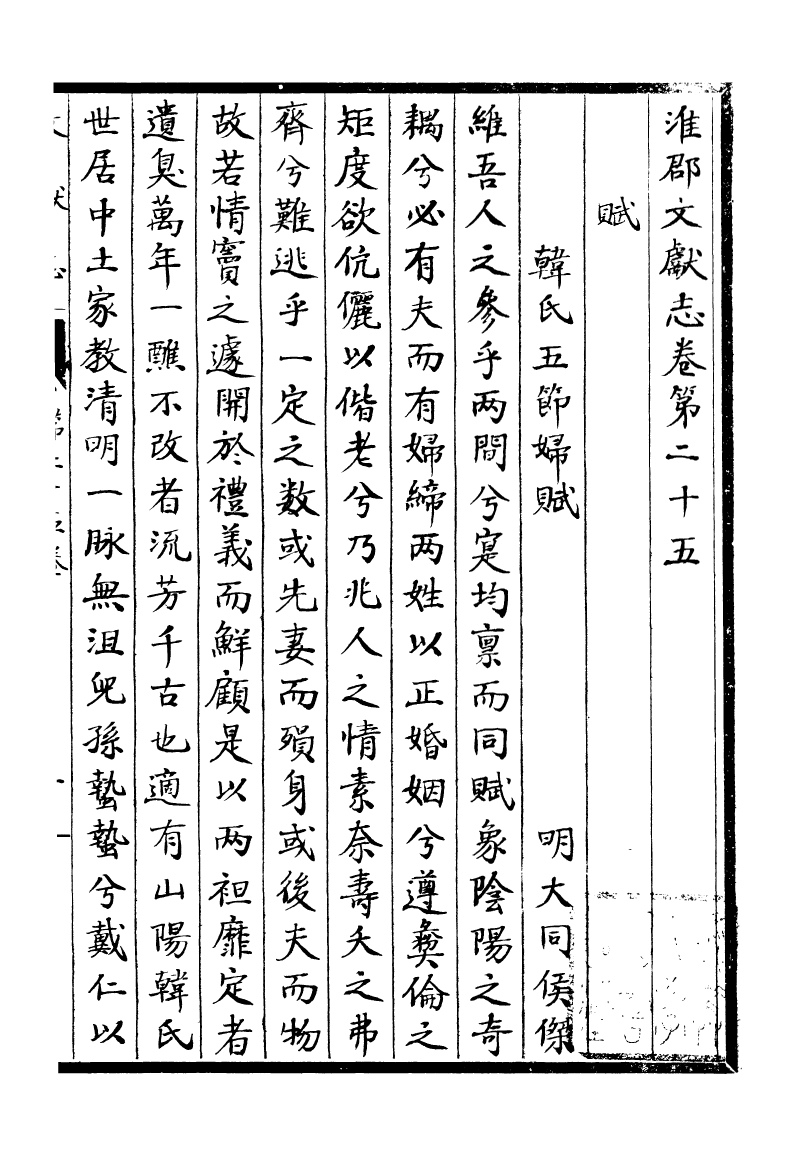 淮郡文獻志卷第二十五
賦
韓氏五節婦賦　明大同侯傑
維吾人之參乎两間兮寔均禀而同賦象陰陽之奇
耦兮必有夫而有婦締两姓以正婚姻兮遵彝倫之
矩度欲伉儷以偕老兮乃兆人之情素奈壽夭之弗
齊兮難逃乎一定之数或先妻而殞身或後夫而物
故若情竇之遽開於禮義而鮮顧是以两袒靡定者
遺臭萬年一醮不改者流芳千古也適有山陽韓氏
世居中土家教清明一脉無沮兒孫蟄蟄兮戴仁以
文獻志　第二十五卷　一